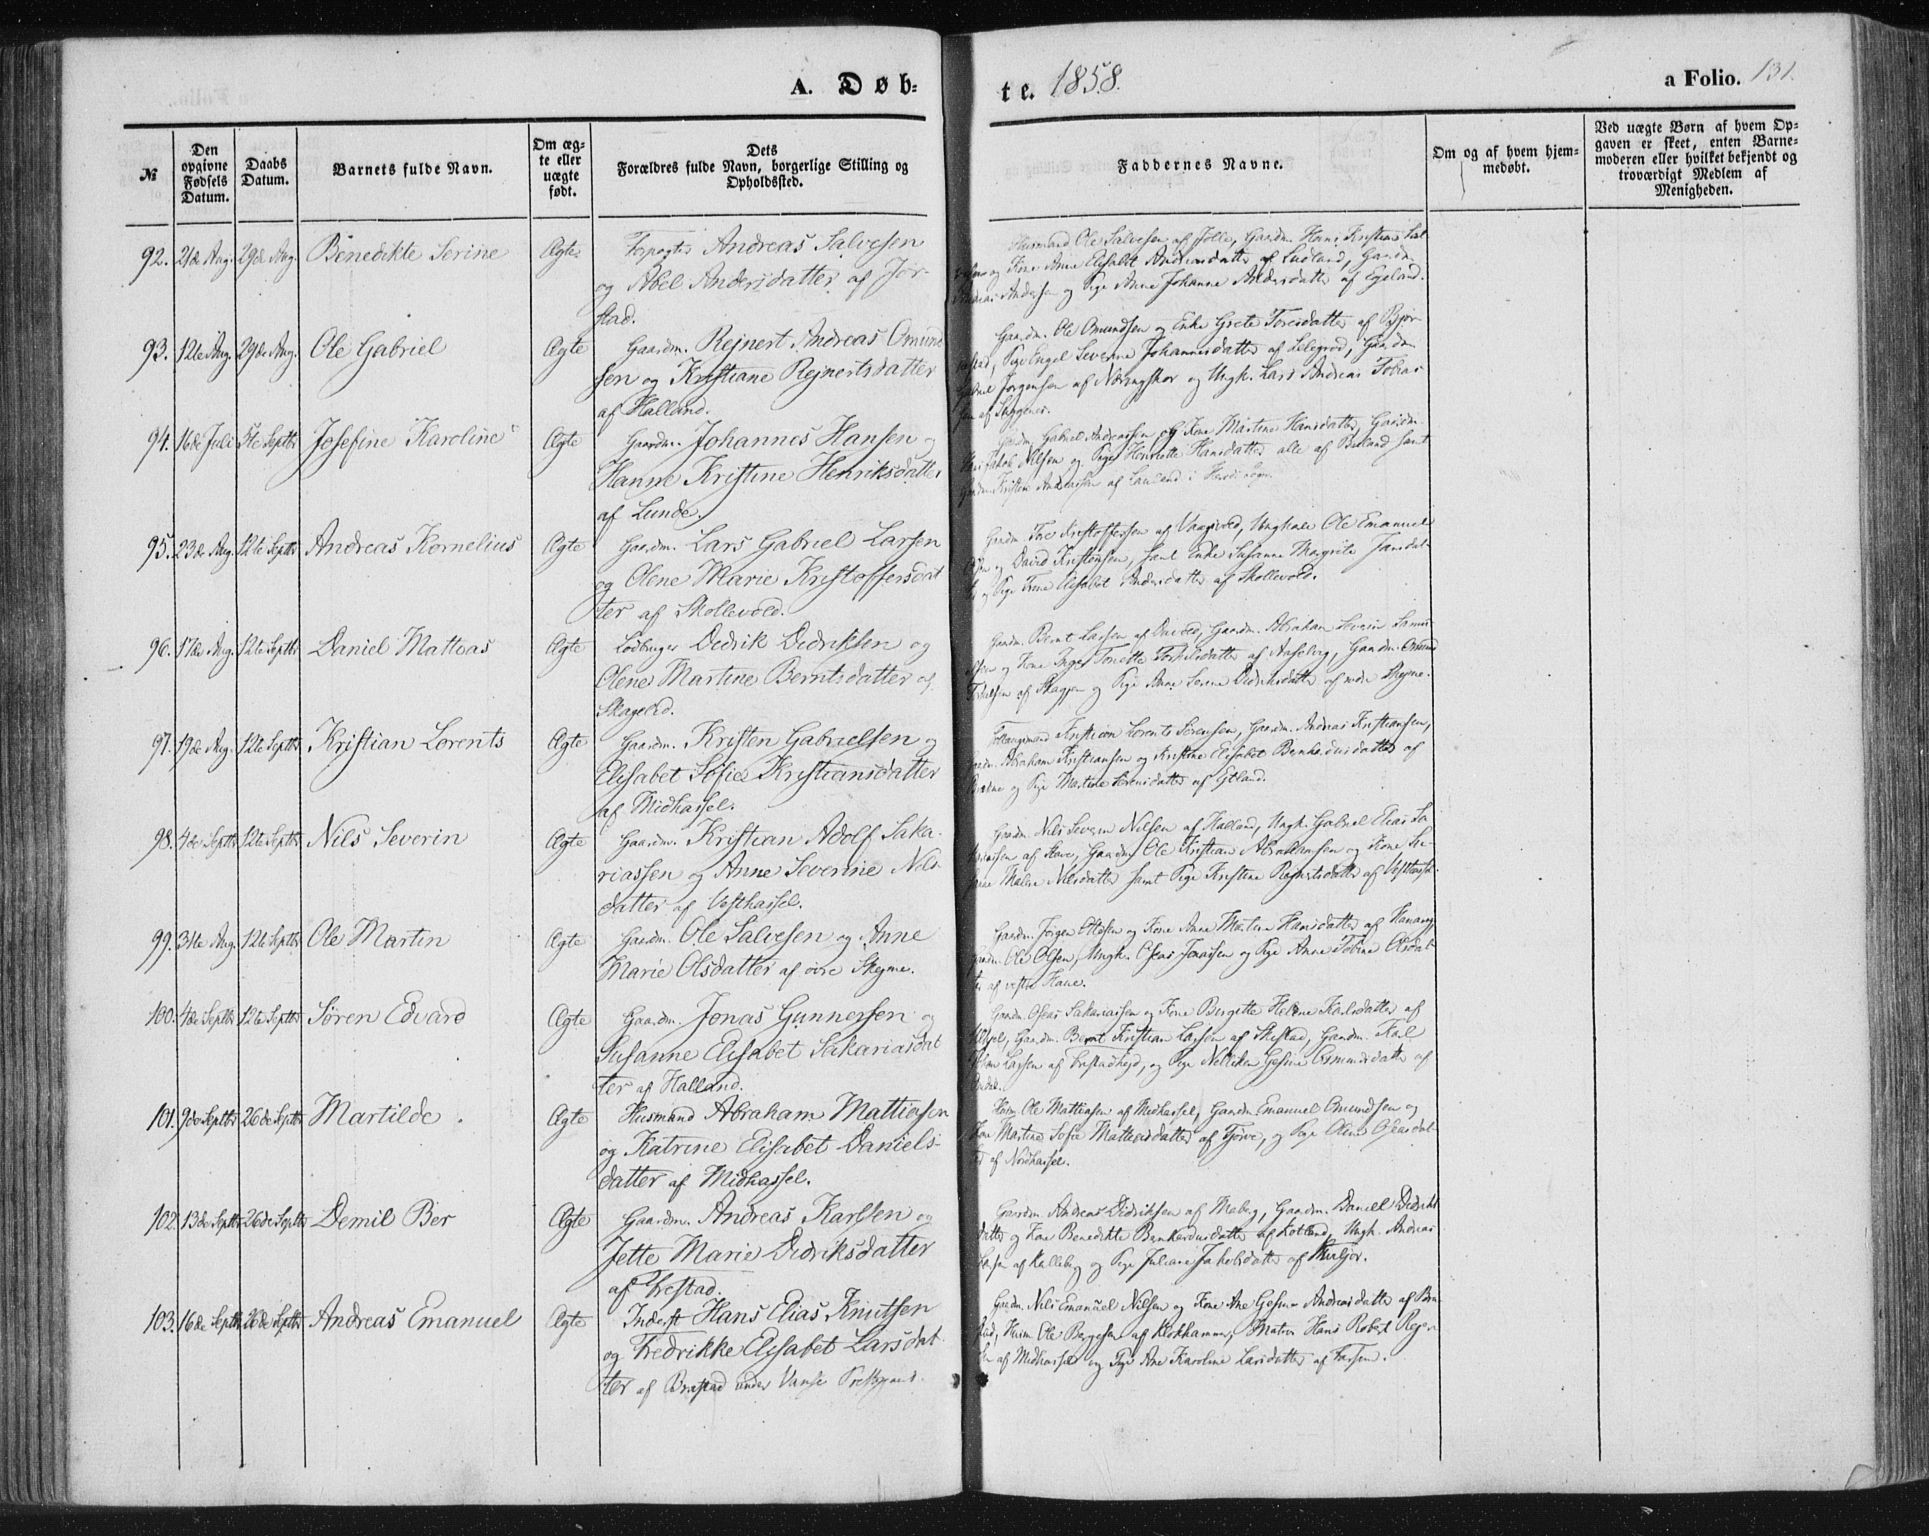 A. Døb=
te. 1858.
a Folio. 131.
№
Den opgivne Fødsels Datum.
Daabs Datum.
Barnets fulde Navn.
Om æg-te eller uægte født.
Dets Forældres fulde Navn, borgerlige Stilling og Opholdssted.
Faddernes Navne.
Om og af hvem hjem-medøbt.
Ved uægte Børn af hvem Op-gaven er skeet, enten Barne-moderen eller hvilket bekjendt og troværdigt Medlem af Menigheden.
92. 21de Aug. 29de Aug. Benedikte Serine Ægte Forpagter Andreas Salvesen
og Abel Andersdatter af Jor-
stad.
Husmand Ole Salvesen af Jølle, Gaardm. Hans Kristian
og Kone Anne Elisabet Andreasdatter af Ladland, Gaardm.
Andersen og Pige Anne Johanne Andersdatter af Egeland.
93. 12te Aug. 29de Aug. Ole Gabriel Ægte Gaardm. Rejnert Andreas Omund
sen og Kristiane Rejnertsdatter
af Halland.
Gaardm. Ole Omundsen og Enke Grete Toresdatter af
Pige Engel Severine Johannesdatter af Lilegrød, Gaardm.
Gabriel Jørgensen af Næringskor og Ungk. Lars Andreas Tobias
sen af
94. 16de Juli 5te Septbr Josefine Karoline Ægte Gaardm. Johannes Hansen og
Hanne Kristine Henriksdatter
af Lunde.
Gaardm. Gabriel Andreassen og Kone Martine Hansdatter, Gaardm.
Jakob Nilsen og Pige Henriette Hansdatter alle af Buland samt
Gaardm. Kristen Andreassen af i Herads Sogn.
95. 23de Aug. 12te Septbr Andreas Kornelius Ægte Gaardm. Lars Gabriel Larsen
og Olene Marie Kristoffersdat
ter af Skollevold.
Gaardm. Tore Kristoffersen af Vaagsvold, Ungkarle Ole Emanuel
og David Kristensen, samt Enke Susanne Margrete Jansdat-
ter og Pige Trine Elisabet Andersdatter af Skollevold.
96. 17de Aug. 12te Septbr Daniel Mattias Ægte Lodbruger Didrik Didriksen og
Olene Martine Berntsdatter af
Skagelid.
Gaardm. Bernt Larsen af Gaardm. Abraham Severin
og Kone Inger Tonette Torkilsdatter af Aaseberg, Gaardm. Omund
af Skagen og Pige Anne Serine Didriksdatter af nedre Skeyme.
97. 19de Aug. 12te Septbr Kristian Lorents Ægte Gaardm. Kristen Gabrielsen og
Elisabet Sofie Kristiansdatter
af Midhassel.
Kristian Lorents Sørensen, Gaardm. Andreas Kristiansen,
Gaardm. Abraham Kristiansen og Kristine Elisabet Bernhardusdatter af
og Pige Martine Sørensdatter af Ytland.
98. 4de Septbr 12te Septbr Nils Severin Ægte Gaardm. Kristian Adolf Saka-
riassen og Anne Severine Nils-
datter af Vesthassel.
Gaardm. Nils Severin Nilsen af Halland, Ungk. Gabriel Elias Sa
kariassen af Stave, Gaardm. Ole Kristian Abrahamsen og Kone Su-
sanne Malene Nilsdatter samt Pige Kristine Rejnertsdatter af Vesthassel.
99. 31te Aug. 12te Septbr Ole Martin Ægte Gaardm. Ole Salvesen og Anne
Marie Olsdatter af øvre Skeyme.
Gaardm. Jørgen Ellefsen og Kone Anne Martine Hansdatter af Hanang,
Gaardm. Ole Olsen, Ungk. Oseas Jonassen og Pige Anne Tobine Olsdat-
ter af vestre Hane.
100. 4de Septbr 12te Septbr Søren Edvard Ægte Gaardm. Jonas Gunnersen og
Susanne Elisabet Sakariasdat
ter af Halland.
Gaardm. Oseas Sakariassen og Kone Bergitte Helene Karlsdatter af
Gaardm. Bernt Kristian Larsen af Skeibstad, Gaardm. Karl
Larsen af og Pige Nellikea Gesine Osmundsdatter af
101. 9de Septbr 26de Septbr Martilde. Ægte Husmand Abraham Mattiasen
og Katrine Elisabet Daniels-
datter af Midhassel.
Husm. Ole Mattiasen af Midhassel, Gaardm. Emanuel Omundsen og
Kone Martine Sofie Mattiasdatter af Tjørve, og Pige Oline Oseasdat-
ter af Nordhassel.
102. 13de Septbr 26de Septbr Demil Ber Ægte Gaardm. Andreas Karlsen og
Jette Marie Didriksdatter
af Vrestad.
Gaardm. Andreas Didriksen af Maberg, Gaardm. Daniel Didriks
og Kone Benedikte Bernhardusdatter af Kotland, Ungk. Andreas
af Kalleberg og Pige Juliane Jakobsdatter af
103. 16de Septbr 26de Septbr Andreas Emanuel Ægte Inderst Hans Elias Knutsen
og Fredrikke Elisabet Larsdat-
ter af Brastad under Vanse Prestegaard.
Gaardm. Nils Emanuel Nilsen og Kone Ane Gesine Andreasdatter af
Husm. Ole Bergesen af Klokhammer, Matros Hans Robert
af Midhassel og Pige Ane Karoline Larsdatter af Farsund.